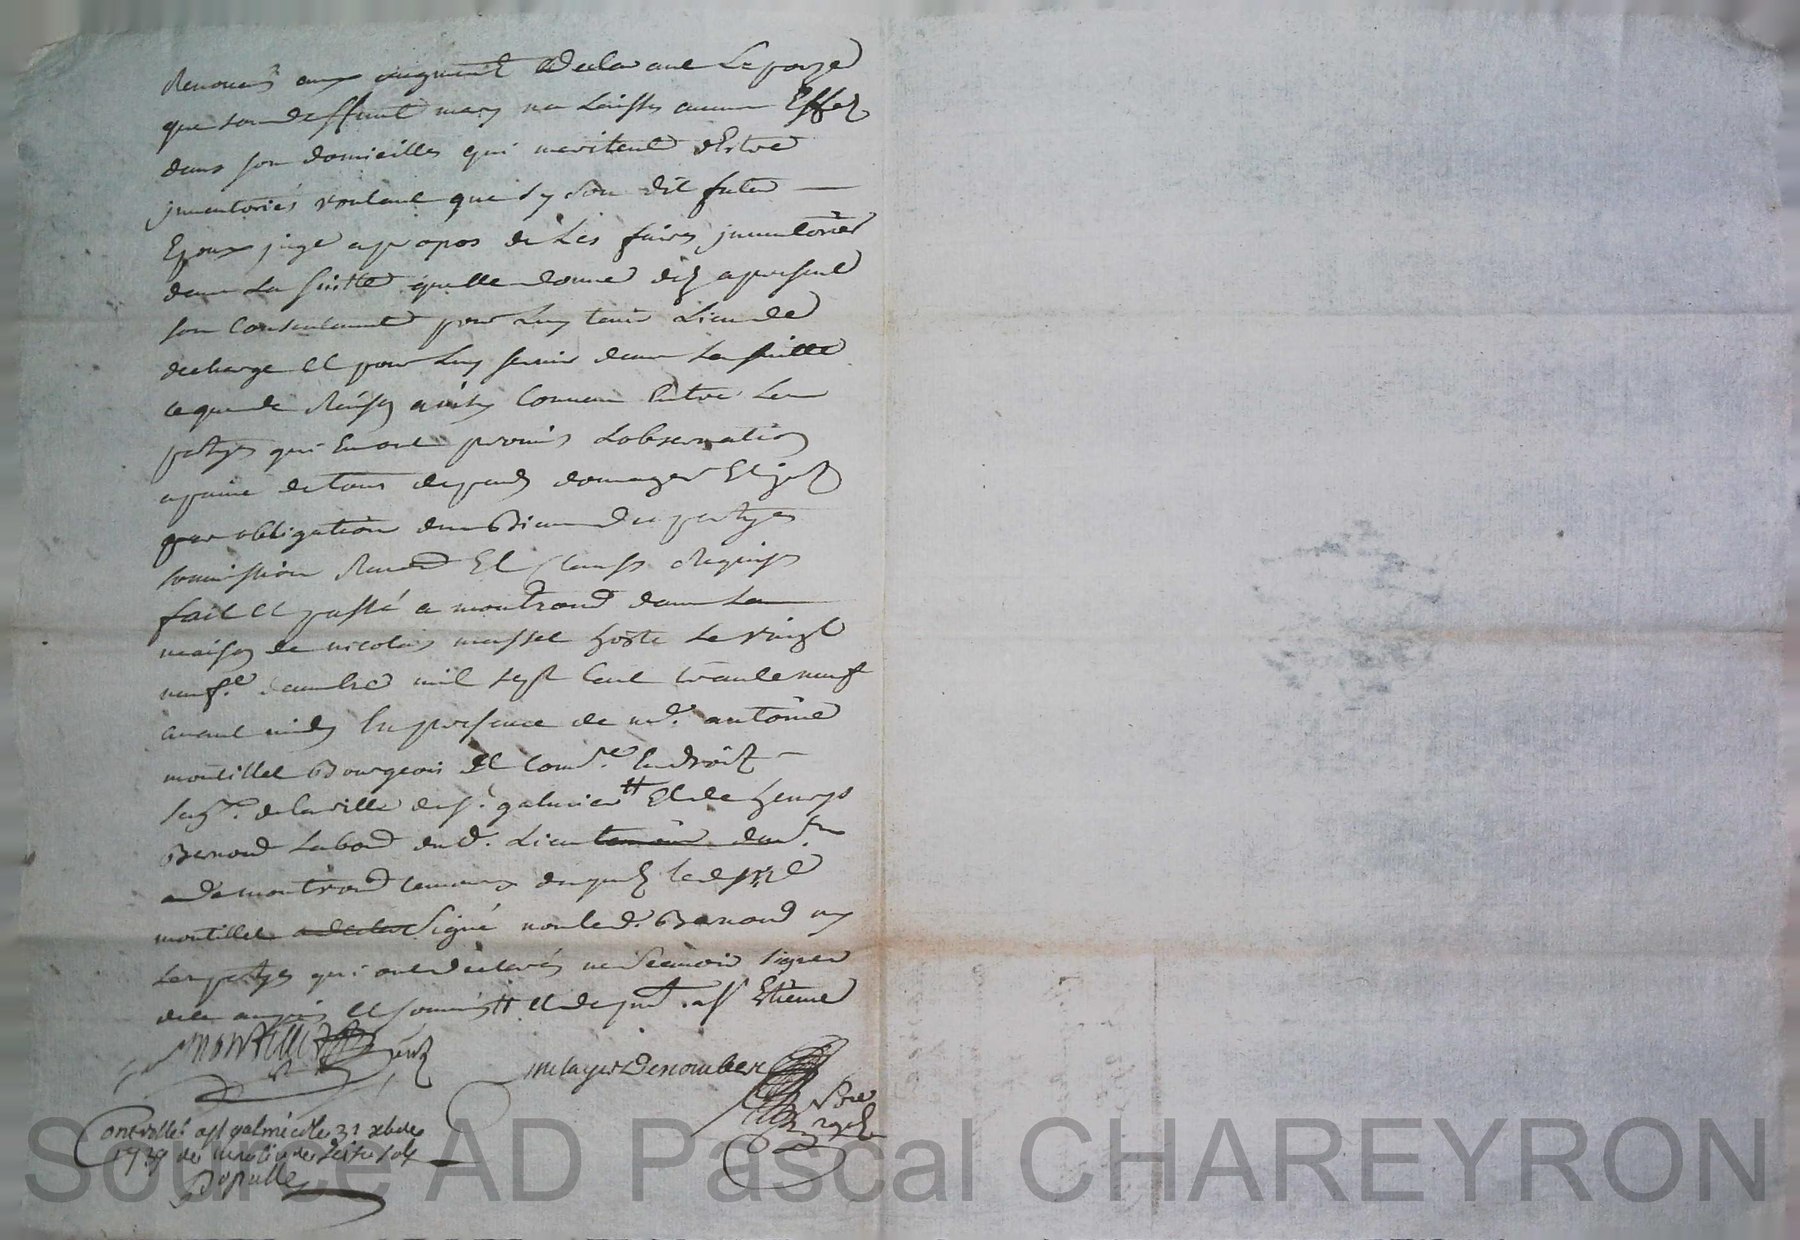 Renoncés aux augment declarant La ponze
que son deffunt mary na Laissés aucun Effet
dans son domicilles qui meritent dEstre
jnventoriés voulant que sy son dit futur
Epoux juge apropos de Les faires jnventorier
dans La suitte quelle donne dez apresent
son Consentement pour Luy tenir Lieu de
decharge Et pour Luy servir dans La suitte
ce que de Raison ainsy Convenu Entre Les
partyes qui En ont promis Lobservation
a paine de tous depends domages Et jnt
par obligation des Biens des partyes
soumission Renond Et Clauses Requises
fait Et passé a montrond dans La
maison de nicolas massel hoste Le vingt
neufe decembre mil sept Cent trante neuf
avant midy En presence de Mr. antoine
montillet Bourgeois Et En droit
de la ville de st. galmier Et de henrys
Bernond Labour dud. Lieu
montrond temoins desquels led
montillet signé non led. Bernond ny
Les partyes qui ont declarés ne scavoir signer
de ce enquis Et sommés Et Estienne
montillet
melayer Denombert
Nore
royal
Controllé a st galmier le 31 xbre
1739 sols
Dopulle
Source AD Pascal CHAREYRON